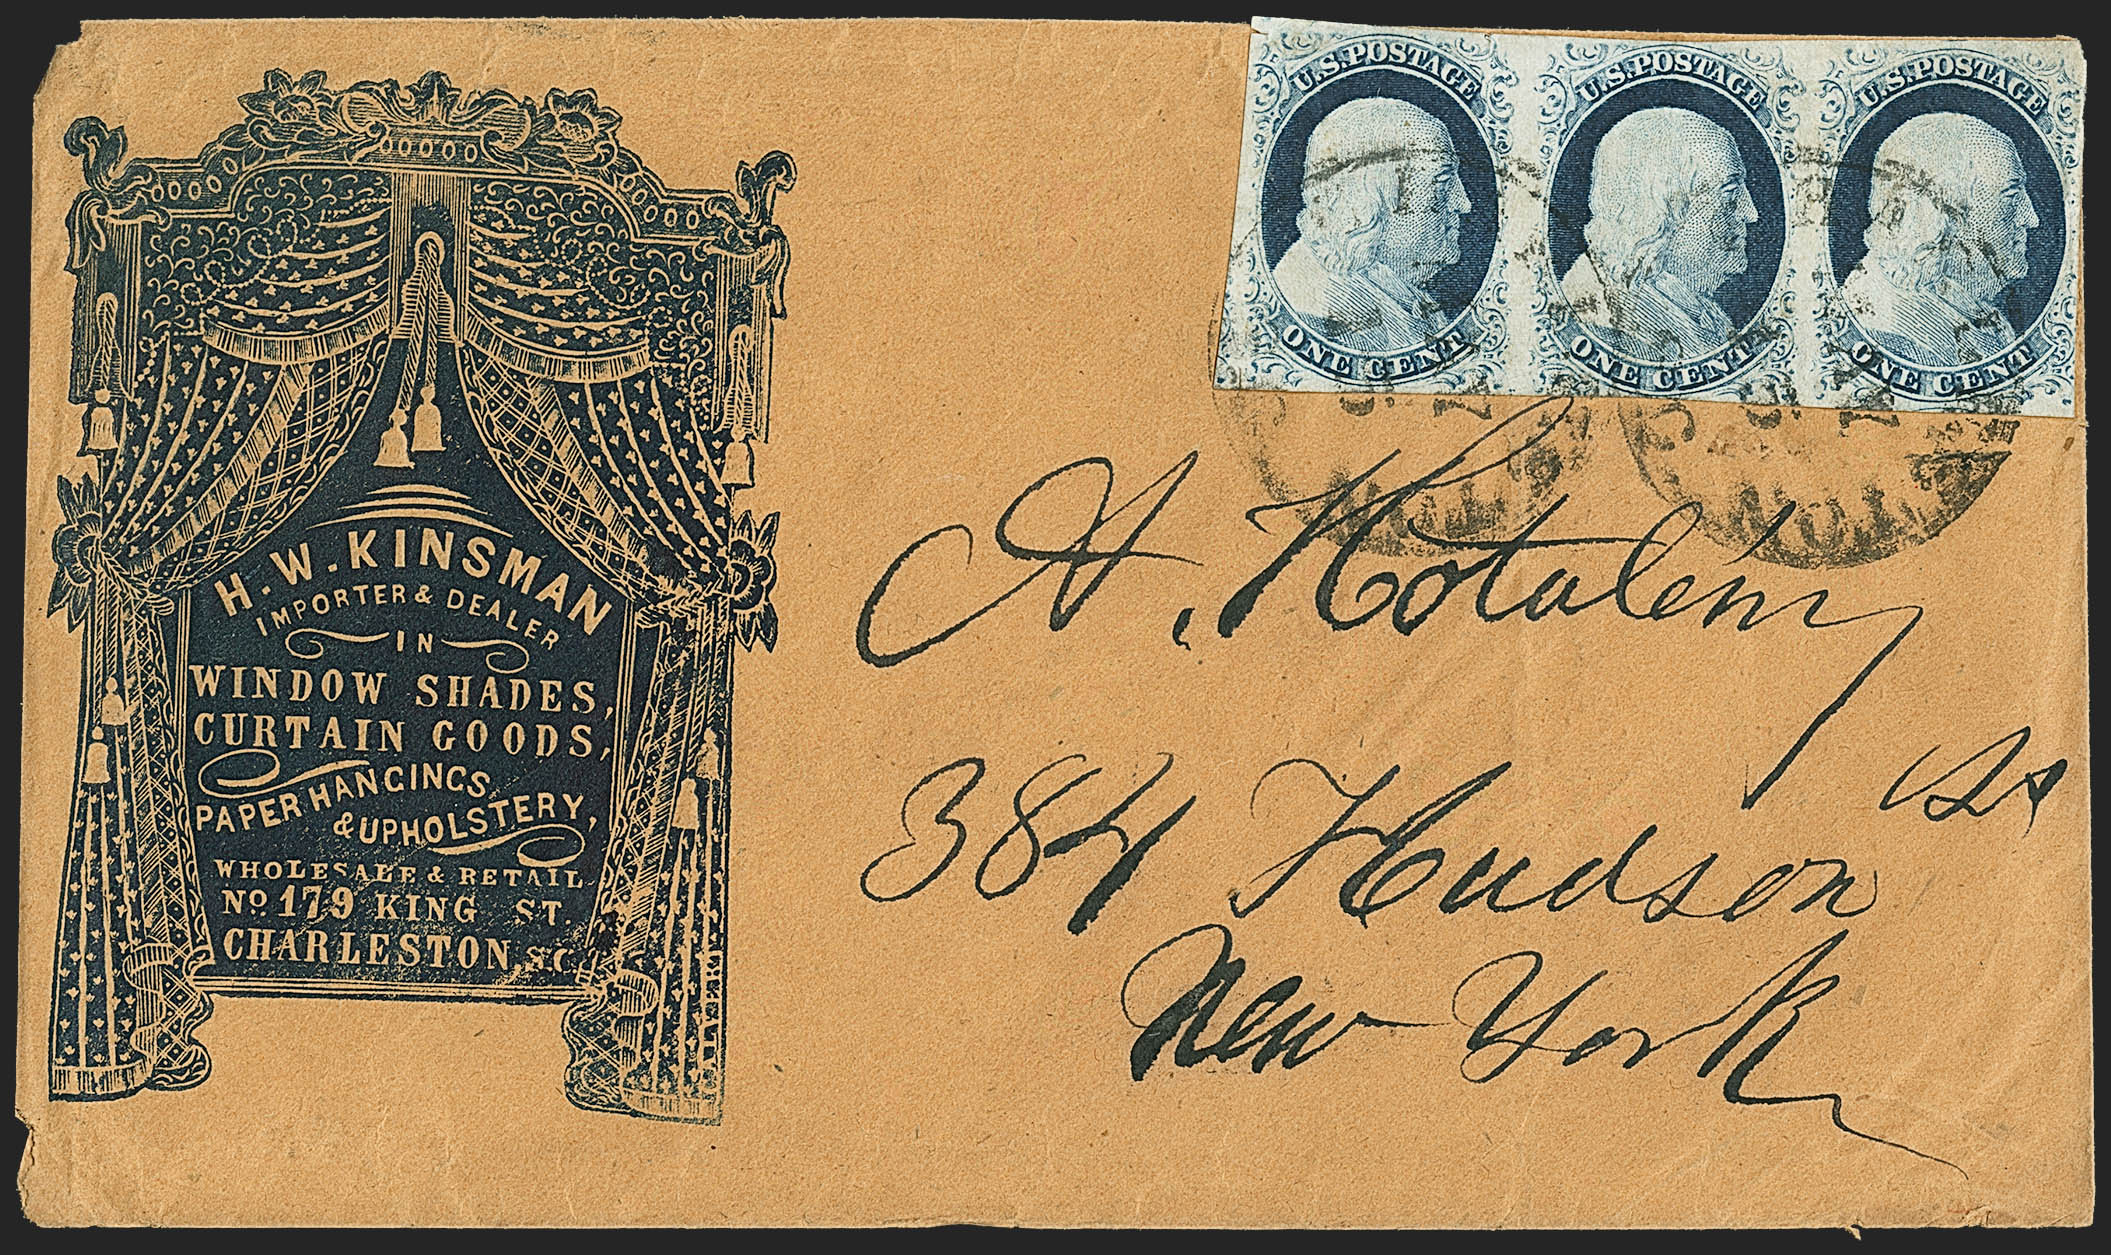 H. W. KINSMAN
IMPORTER & DEALER
IN
WINDOW SHADES,
CURTAIN GOODS,
PAPER HANGINGS
& UPHOLSTERY,
WHOLESALE & RETAIL
No. 179 KING ST.
CHARLESTON, S.C.
CALVERT
U.S. POSTAGE
ONE CENT
U.S. POSTAGE
ONE CENT
U.S. POSTAGE
ONE CENT
A. Hotaleny
384 Hudson St
New York